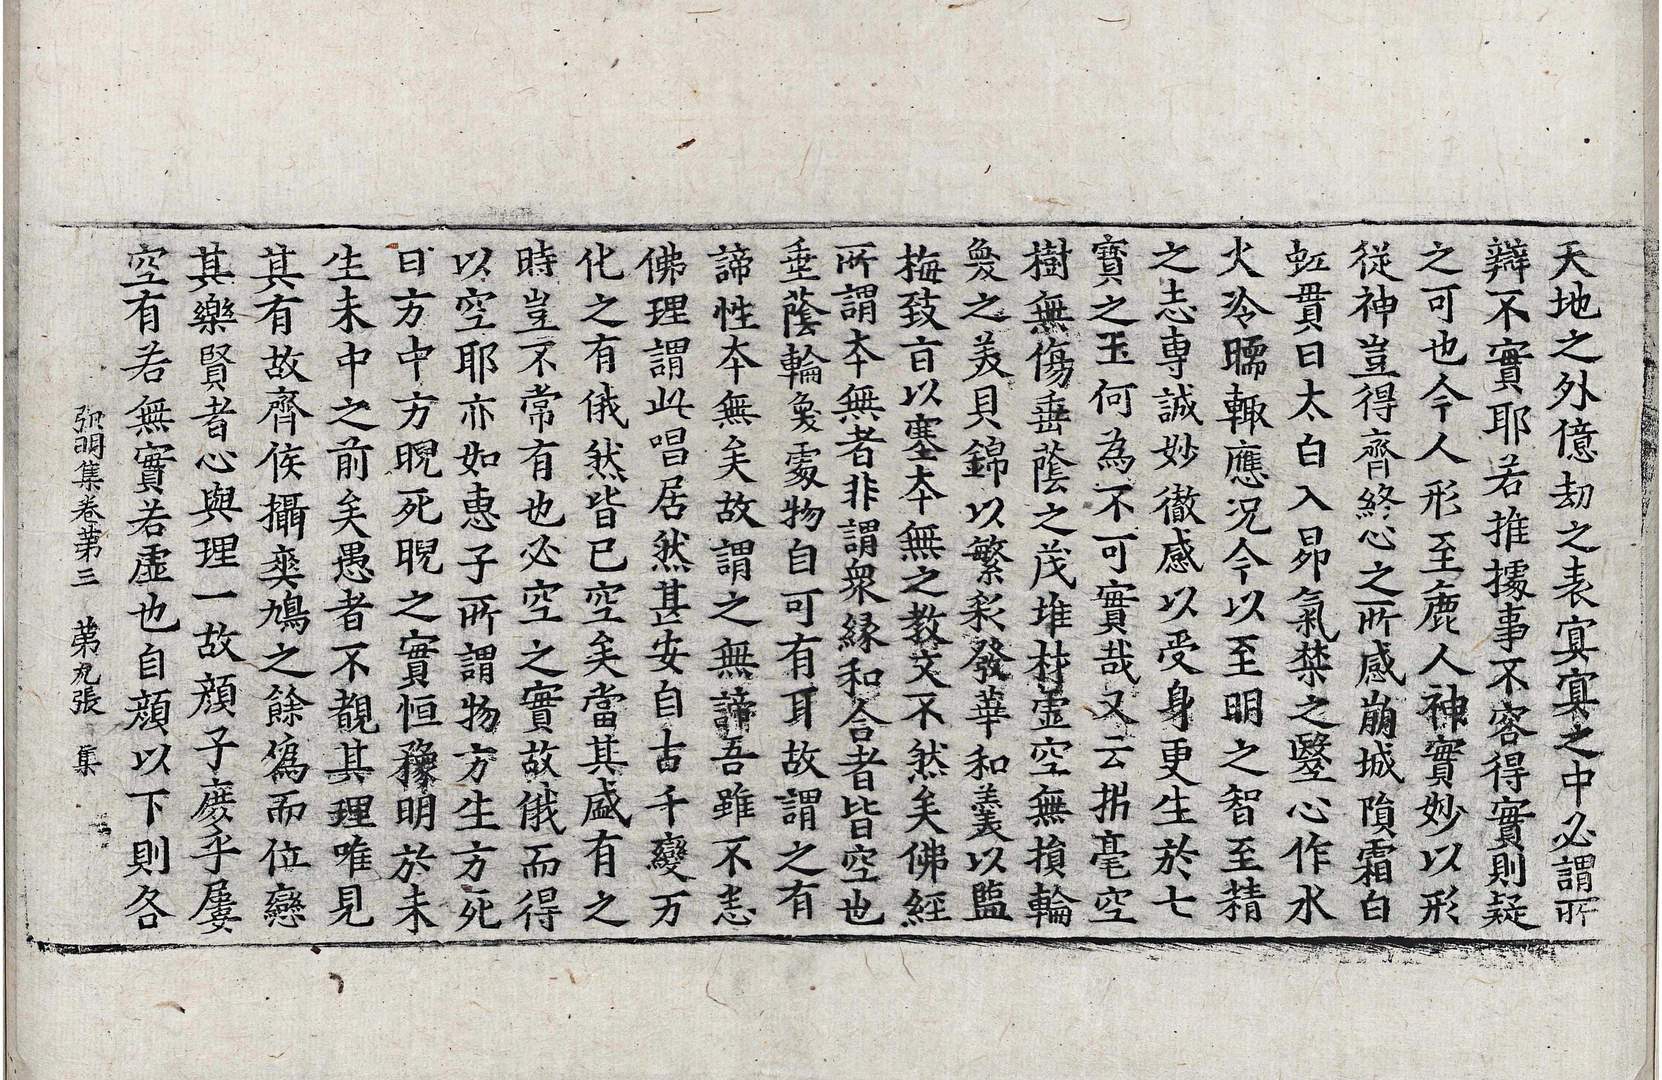 天地之外億劫之表寘寘之中必謂所
辯不實耶若推據事不容得實則疑
之可也今人形至麁人神實妙以形
從神豈得齊終心之所感崩城隕霜白
虹貫日太白入昴氣禁之醫心作水
火冷暖輙應况今以至明之智至精
之志専誠妙徹感以受身更生於七
寳之玉何為不可實哉又云拆毫空
樹無傷垂蔭之茂堆材虛空無損輪
奐之美貝錦以繁彩發華和羹以監
梅致百以塞夲無之教文不然矣佛經
所謂夲無者非謂衆緣和合者皆空也
垂蔭輪奐處物自可有耳故謂之有
諦性夲無矣故謂之無諦吾雖不恚
佛理謂此唱居然甚安自古千變万
化之有俄然皆已空矣當其盛有之
時豈不常有也必空之實故俄而得
以空耶亦如惠子所謂物方生方死
日方中方睨死睨之實恒豫明於未
生未中之前矣愚者不覩其理唯見
其有故齊侯攝爽鳩之餘僞而位戀
其樂賢者心與理一故顔子庶乎屢
空有若無實若虛也自顔以下則各
弘明集卷苐三　苐九張　集